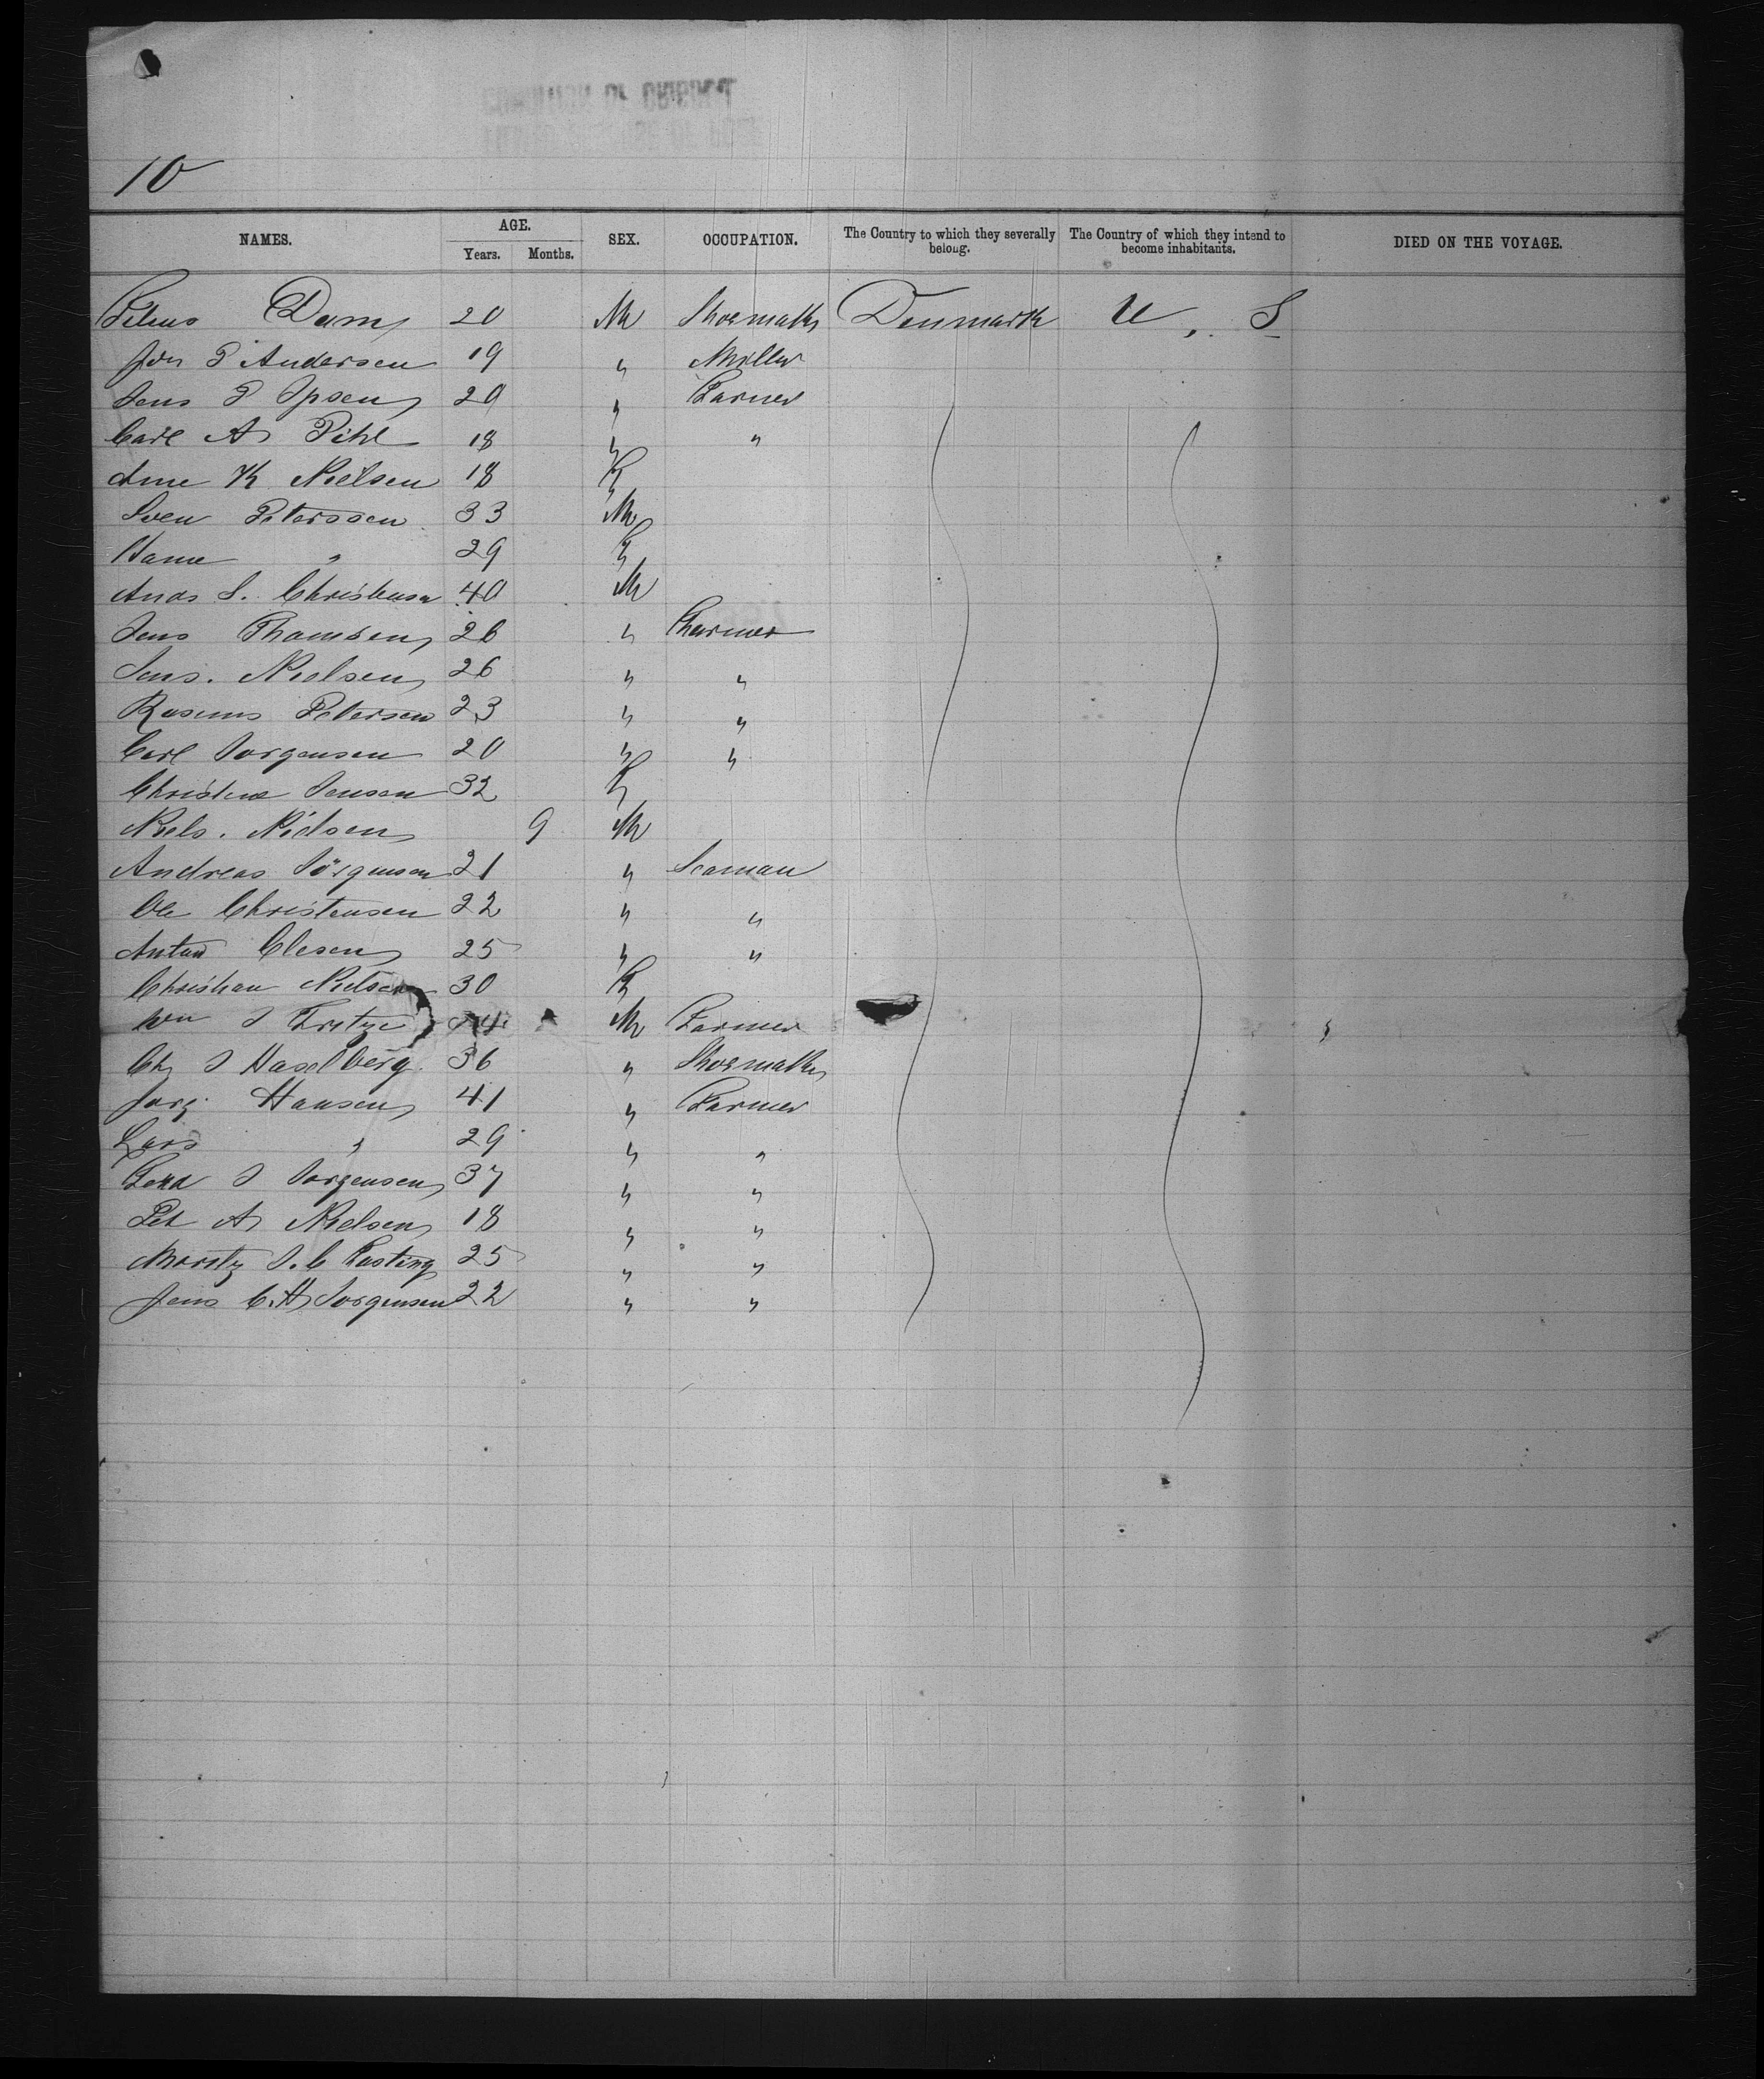 10
NAMES. AGE. Years. Months. SEX. OCCUPATION. The Country to which they severally belong. The Country of which they intend to become inhabitants. DIED ON THE VOYAGE.
Dam 20 M Shoemaker Denmark U. S
Jörg P Andersen 19 " Miller
Jens P Ipsen 20 " Farmer
Carl A Pihl 18 " "
Ane K Nielsen 18 F
Sven Peterssen 33 M
Hanne " 29 F
Anas S. Christensen 40 M
Jens Thomsen 26 " Farmer
Jens. Nielsen 26 " "
Rasmus Petersen 23 " "
Carl Jorgensen 20 " "
Christine Jensen 32 F
Niels. Nielsen 9 M
Andreas Jörgensen 21 " Seaman
Ole Christensen 22 " "
Anton Olesen 25 " "
Christian Nielsen 30 F
Wm J Fritze M Farmer
Ch J Haselberg 36 " Shoemaker
Jorg. Hansen 41 " Farmer
Lars " 29 " "
Ferd J Jorgensen 37 " "
Pet A Nielsen 18 " "
Moritz J. C Fasting 25 " "
Jens C. H Jorgensen 22 " "